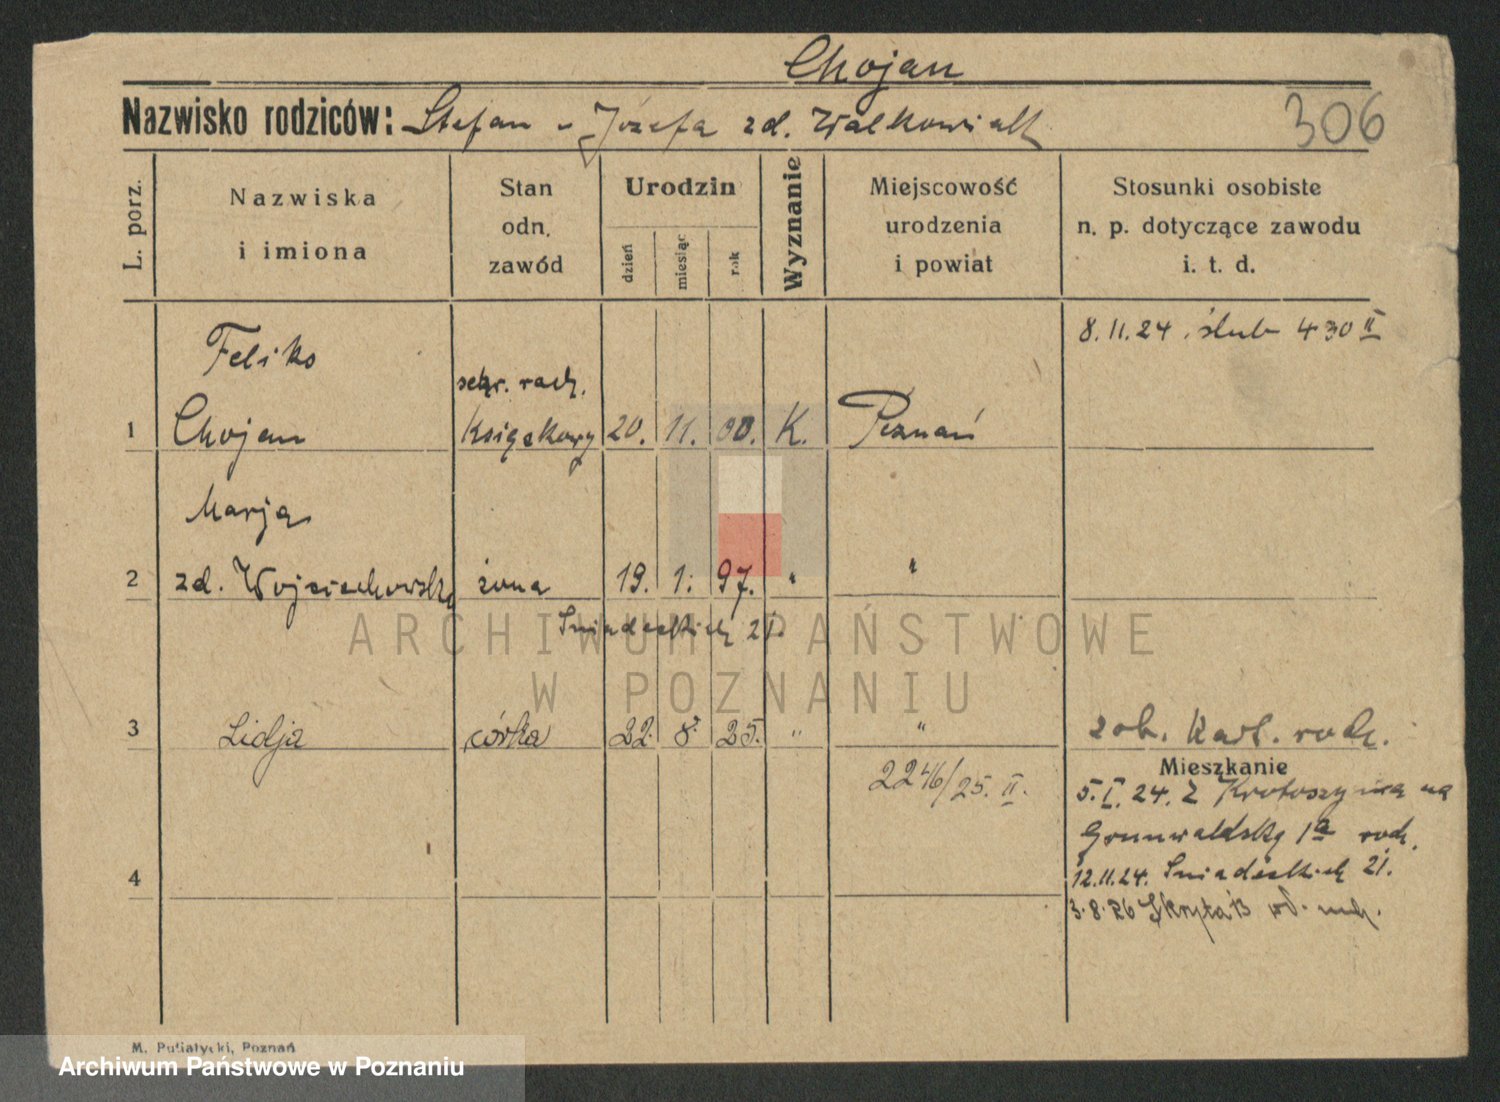 Chojan
Nazwisko rodziców: Stefan - Józefa zd. Walkowiak
306
L. porz.
Nazwiska
i imiona
Stan
odn.
zawód
Urodzin
dzień
miesiąc
rok
Wyznanie
Miejscowość
urodzenia
i powiat
Stosunki osobiste
n. p. dotyczące zawodu
i. t. d.
8.11.24. ślub 430 II
Feliks
sekr. rach.
1 Chojan Księgkowy 20. 11. 00. K. Poznań
Marja
2 zd. Wojciechowska żona 19. 1. 97. " "
Śniadeckich 21.
ARCHIWUM PAŃSTWOWE
W POZNANIU
3 Lidja córka 22. 8. 25. " " zob. Kart. rodz.
2246/25. II.
Mieszkanie
5. I. 24. z Krotoszyna na
Grunwaldską 1a rodz.
12.11.24. Śniadeckich 21.
4
3.8.26 Skryta 13
M. Putiatycki, Poznań
Archiwum Państwowe w Poznaniu